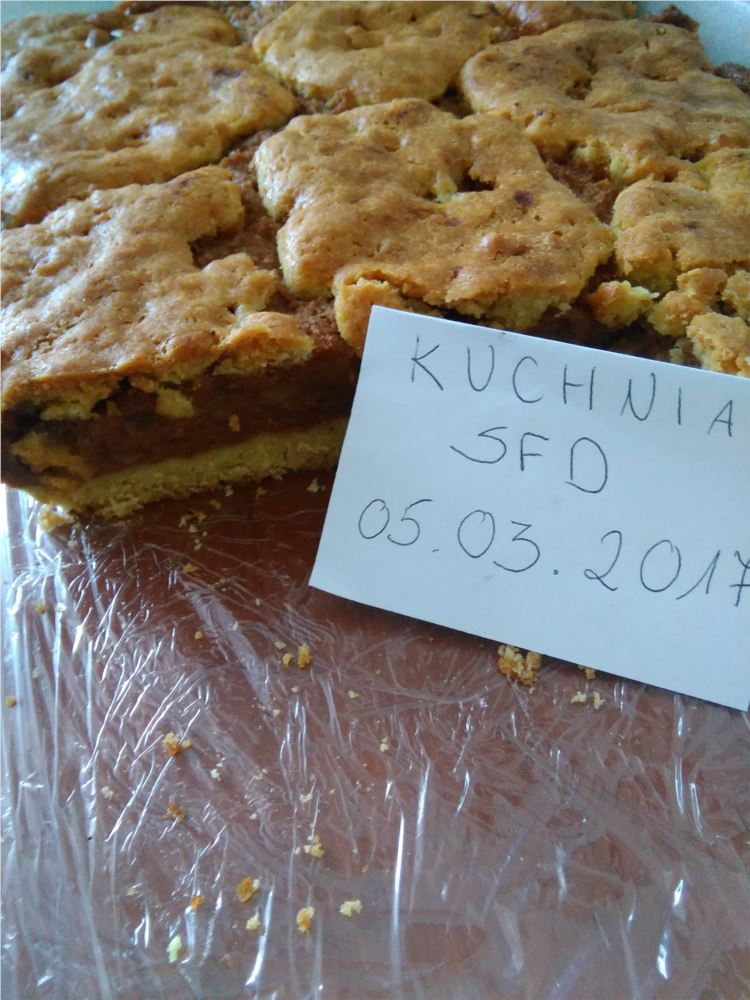 KUCHNIA
SFD
05.03.2017